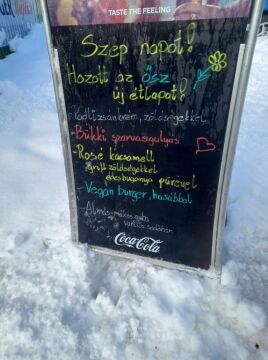 TASTE THE FEELING
Szép napot!
Hozott az ősz
új étlapot!
Padlizsánkrém, zöldségekkel
- Bükki szarvasgulyás
- Rosé kacsamell
grill zöldségekkel
édesburgonya pürével
- Vegán burger, hasábbal
- Almás-mákos guba
vanília sodóban
Coca-Cola